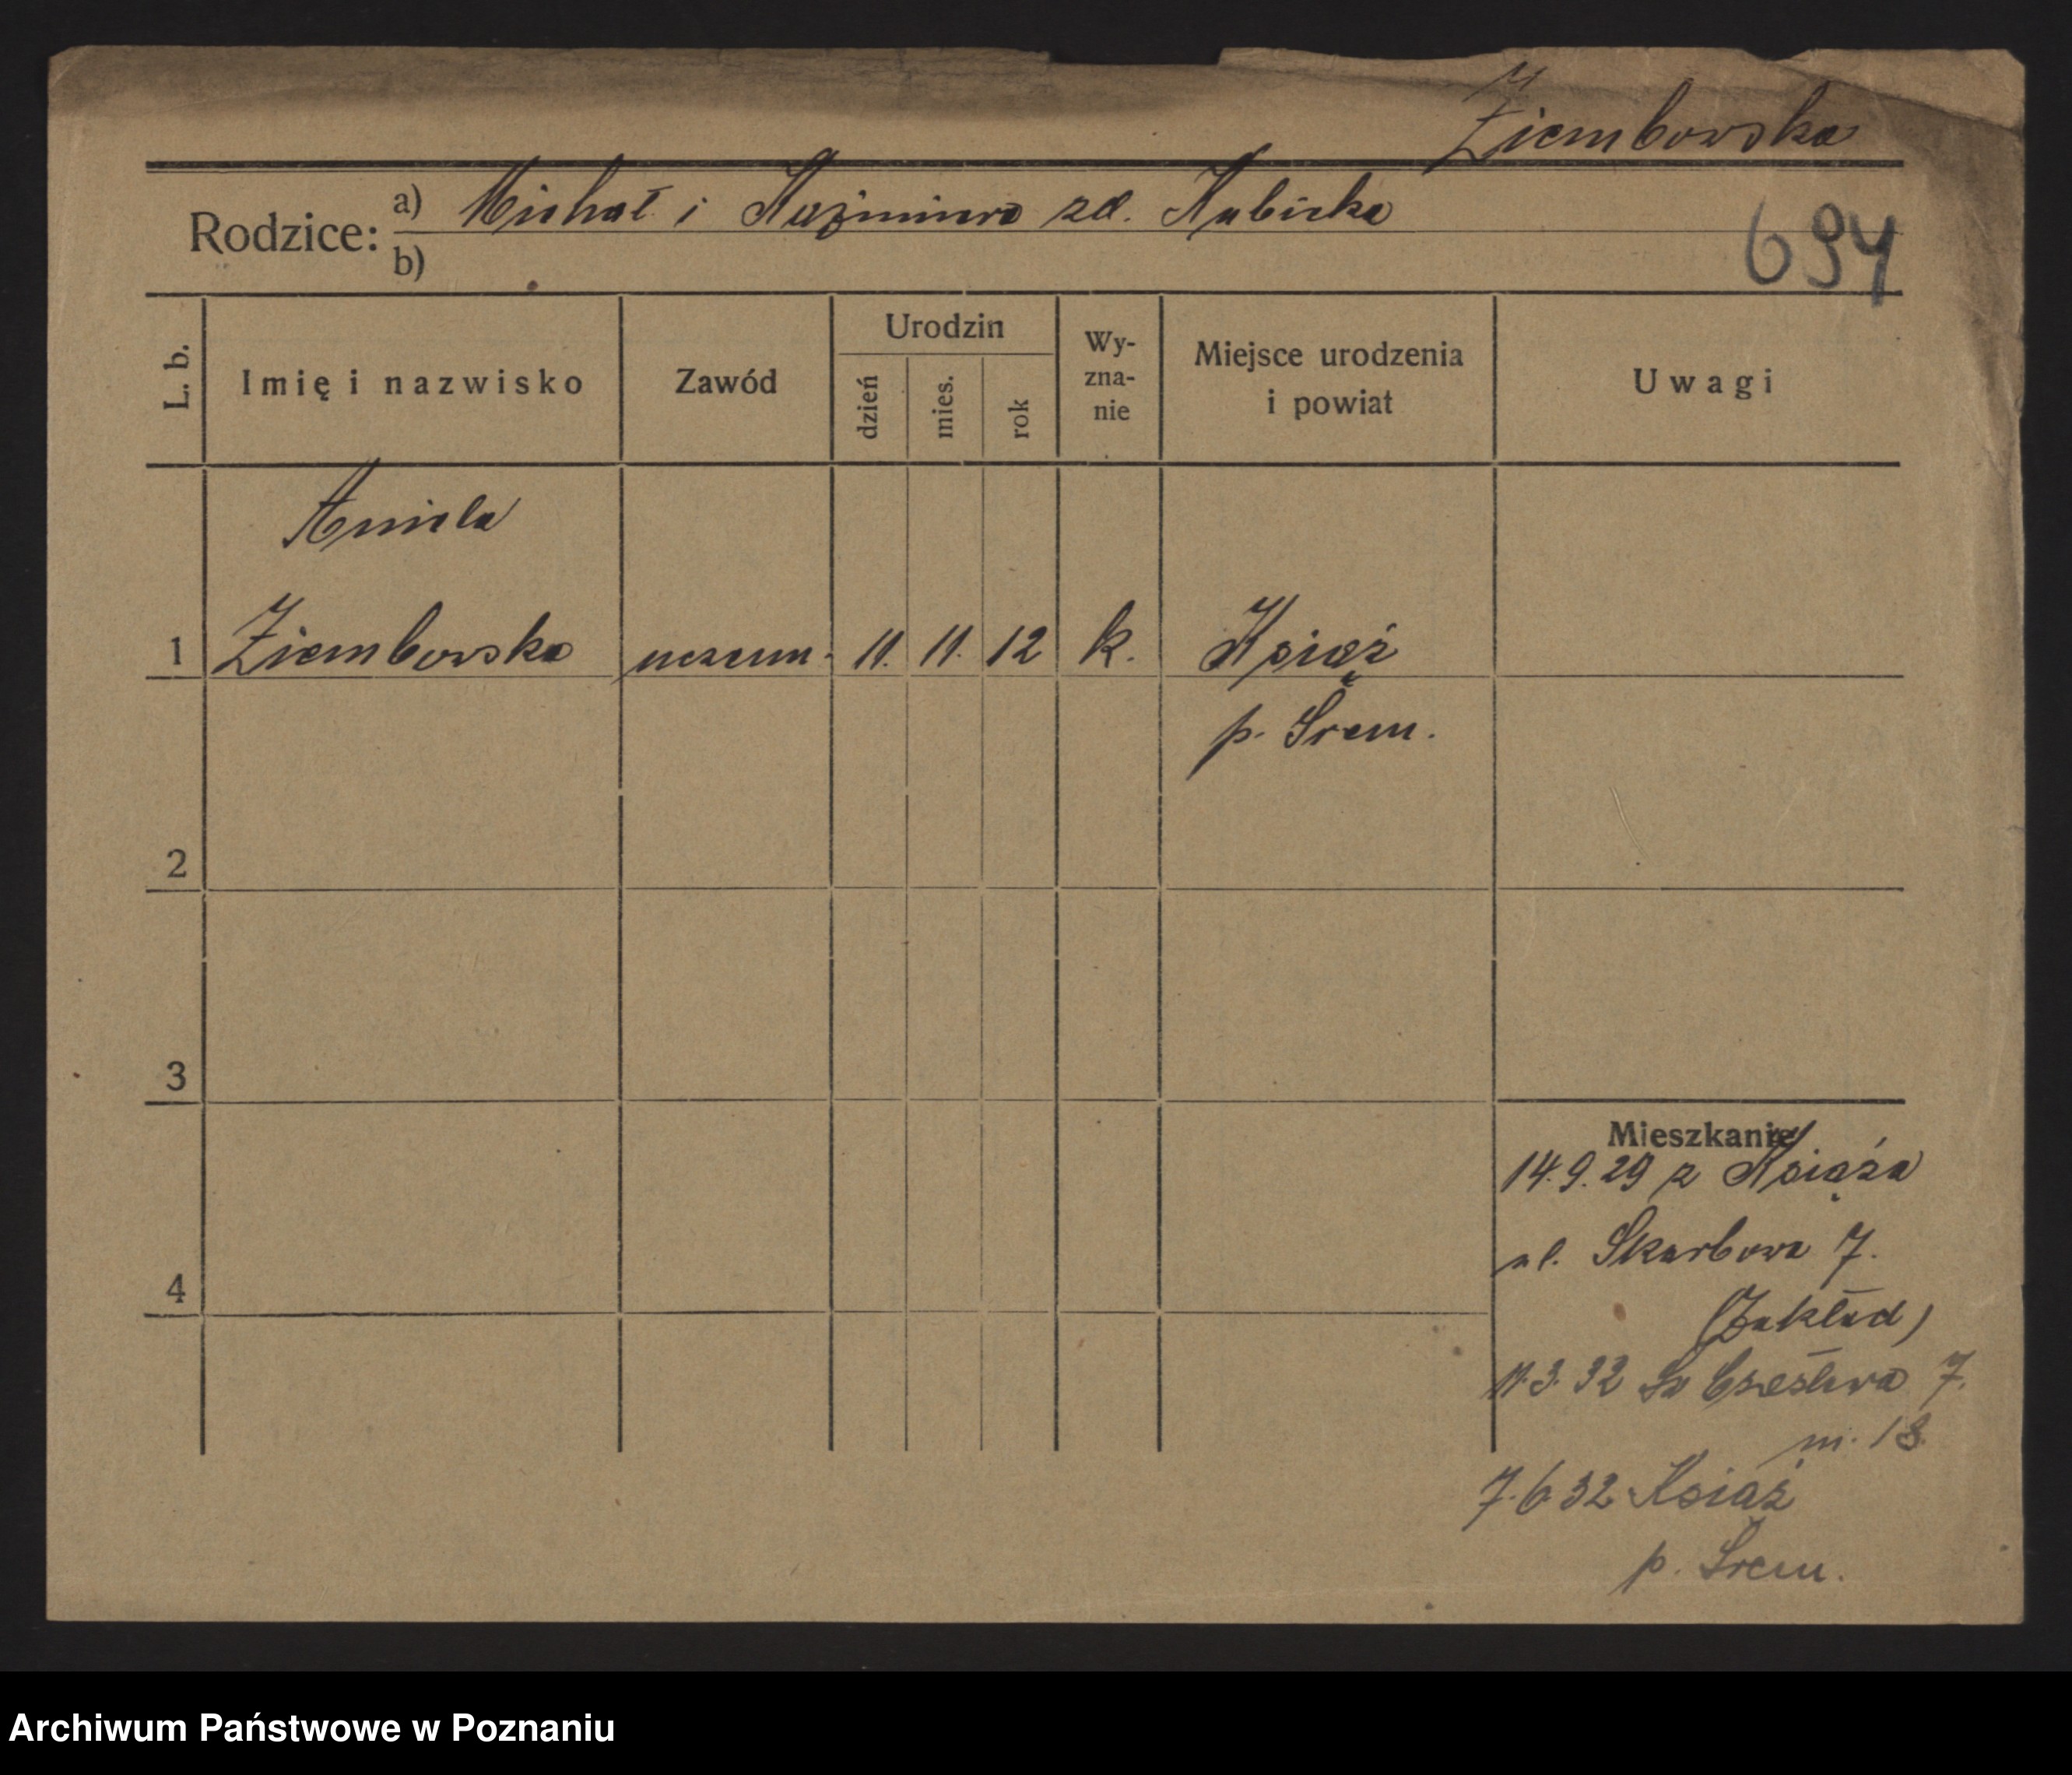 Ziembowska
Rodzice: a) Michał i Kazimiera zd. Kubicka
b)
694
L. b.
Imię i nazwisko
Zawód
Urodzin
dzień
mies.
rok
Wy-
zna-
nie
Miejsce urodzenia
i powiat
Uwagi
Aniela
1 Ziembowska uczenn. 11. 11. 12 k. Książ
p. Śrem.
2
3
4
Mieszkanie
14.9.29 z Książa
ul. Skarbowa 7.
(Zakład)
11.3.32 Św Czesława 7.
m. 18
7.6 32 Książ
p. Śrem.
Archiwum Państwowe w Poznaniu